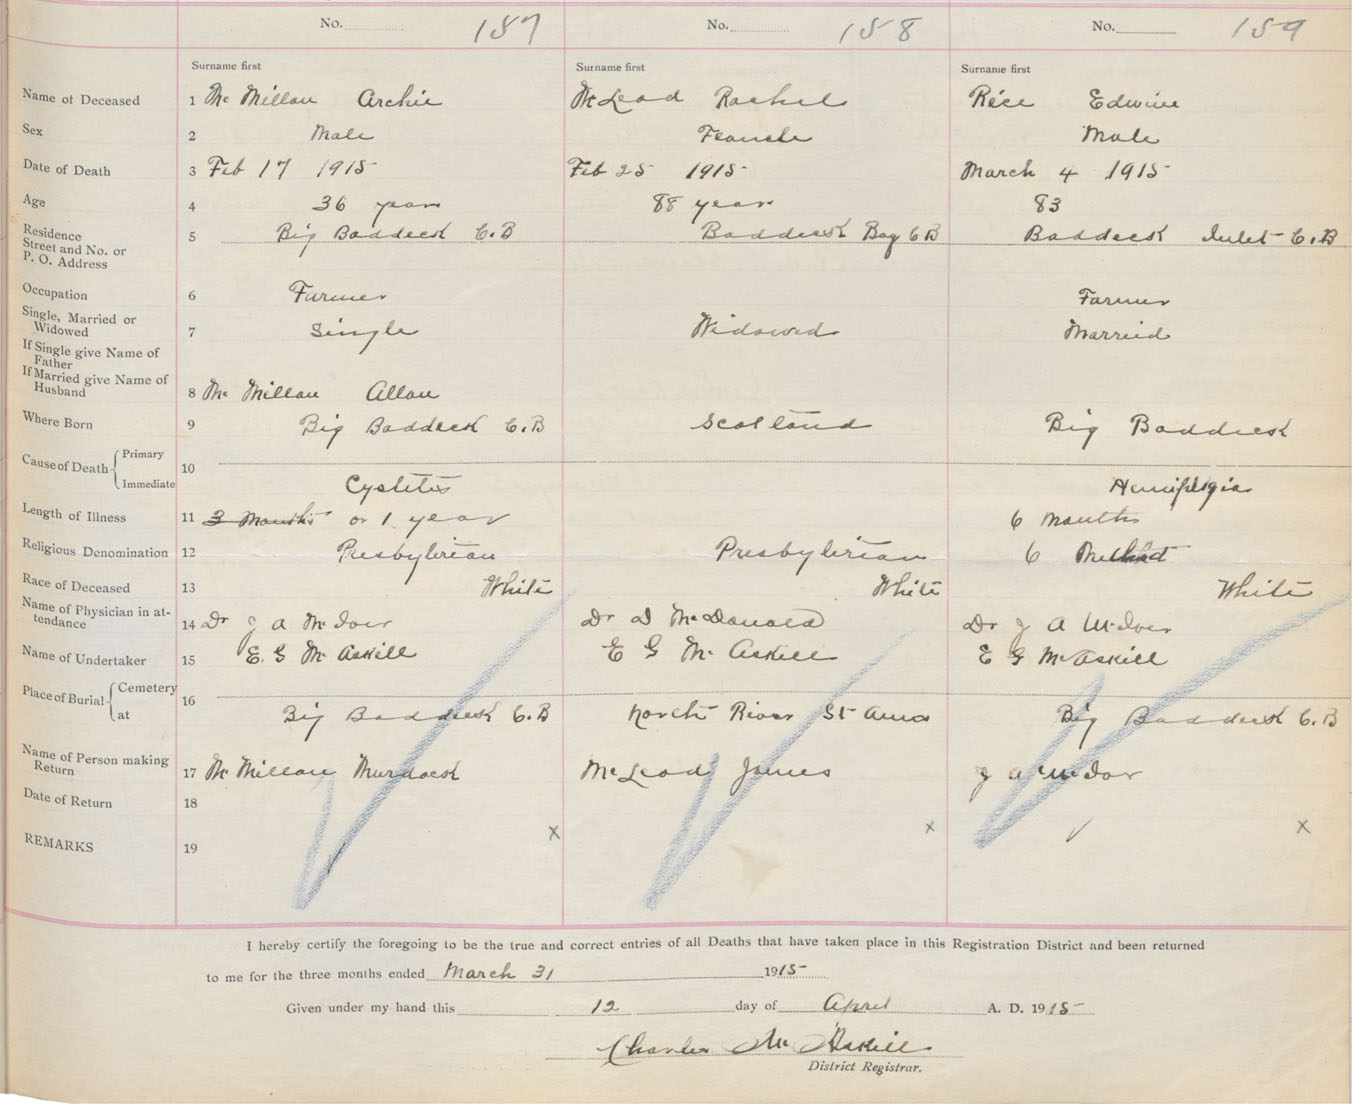 No. 157 No. 158 No. 159
Surname first Surname first Surname first
Name of Deceased 1 Mc Millan Archie McLeod Rachel Rice Edwine
Sex 2 Male Female Male
Date of Death 3 Feb 17 1915 Feb 25 1915 March 4 1915
Age 4 36 years 88 years 83
Residence
Street and No. or
P. O. Address 5 Big Baddeck C.B Baddeck Bay C B Baddeck Inlet C.B
Occupation 6 Farmer Farmer
Single, Married or
Widowed 7 Single Widowed Marreid
If Single give Name of
Father
If Married give Name of
Husband 8 Mc Millan Allan
Where Born 9 Big Baddeck C.B Scotland Big Baddeck
Cause of Death Primary
10
Immediate Cystetis
Length of Illness 11 3 Months or 1 year 6 months
Religious Denomination 12 Presbyterian Presbyterian 6
Race of Deceased 13 White White White
Name of Physician in at-
tendance 14 Dr J A McIver Dr D McDonald Dr J A McIver
Name of Undertaker 15 E. G McAskill E G Mc Askill E G McAskill
Place of Burial Cemetery
16
at Big Baddeck C.B North River St Anns Big Baddeck C.B
Name of Person making
Return 17 Mc Millan Murdock McLeod James J A McIver
Date of Return 18
REMARKS 19 x x x
I hereby certify the foregoing to be the true and correct entries of all Deaths that have taken place in this Registration District and been returned
to me for the three months ended March 31 1915
Given under my hand this 12 day of April A. D. 1915
Charles Mc Askill
District Registrar.